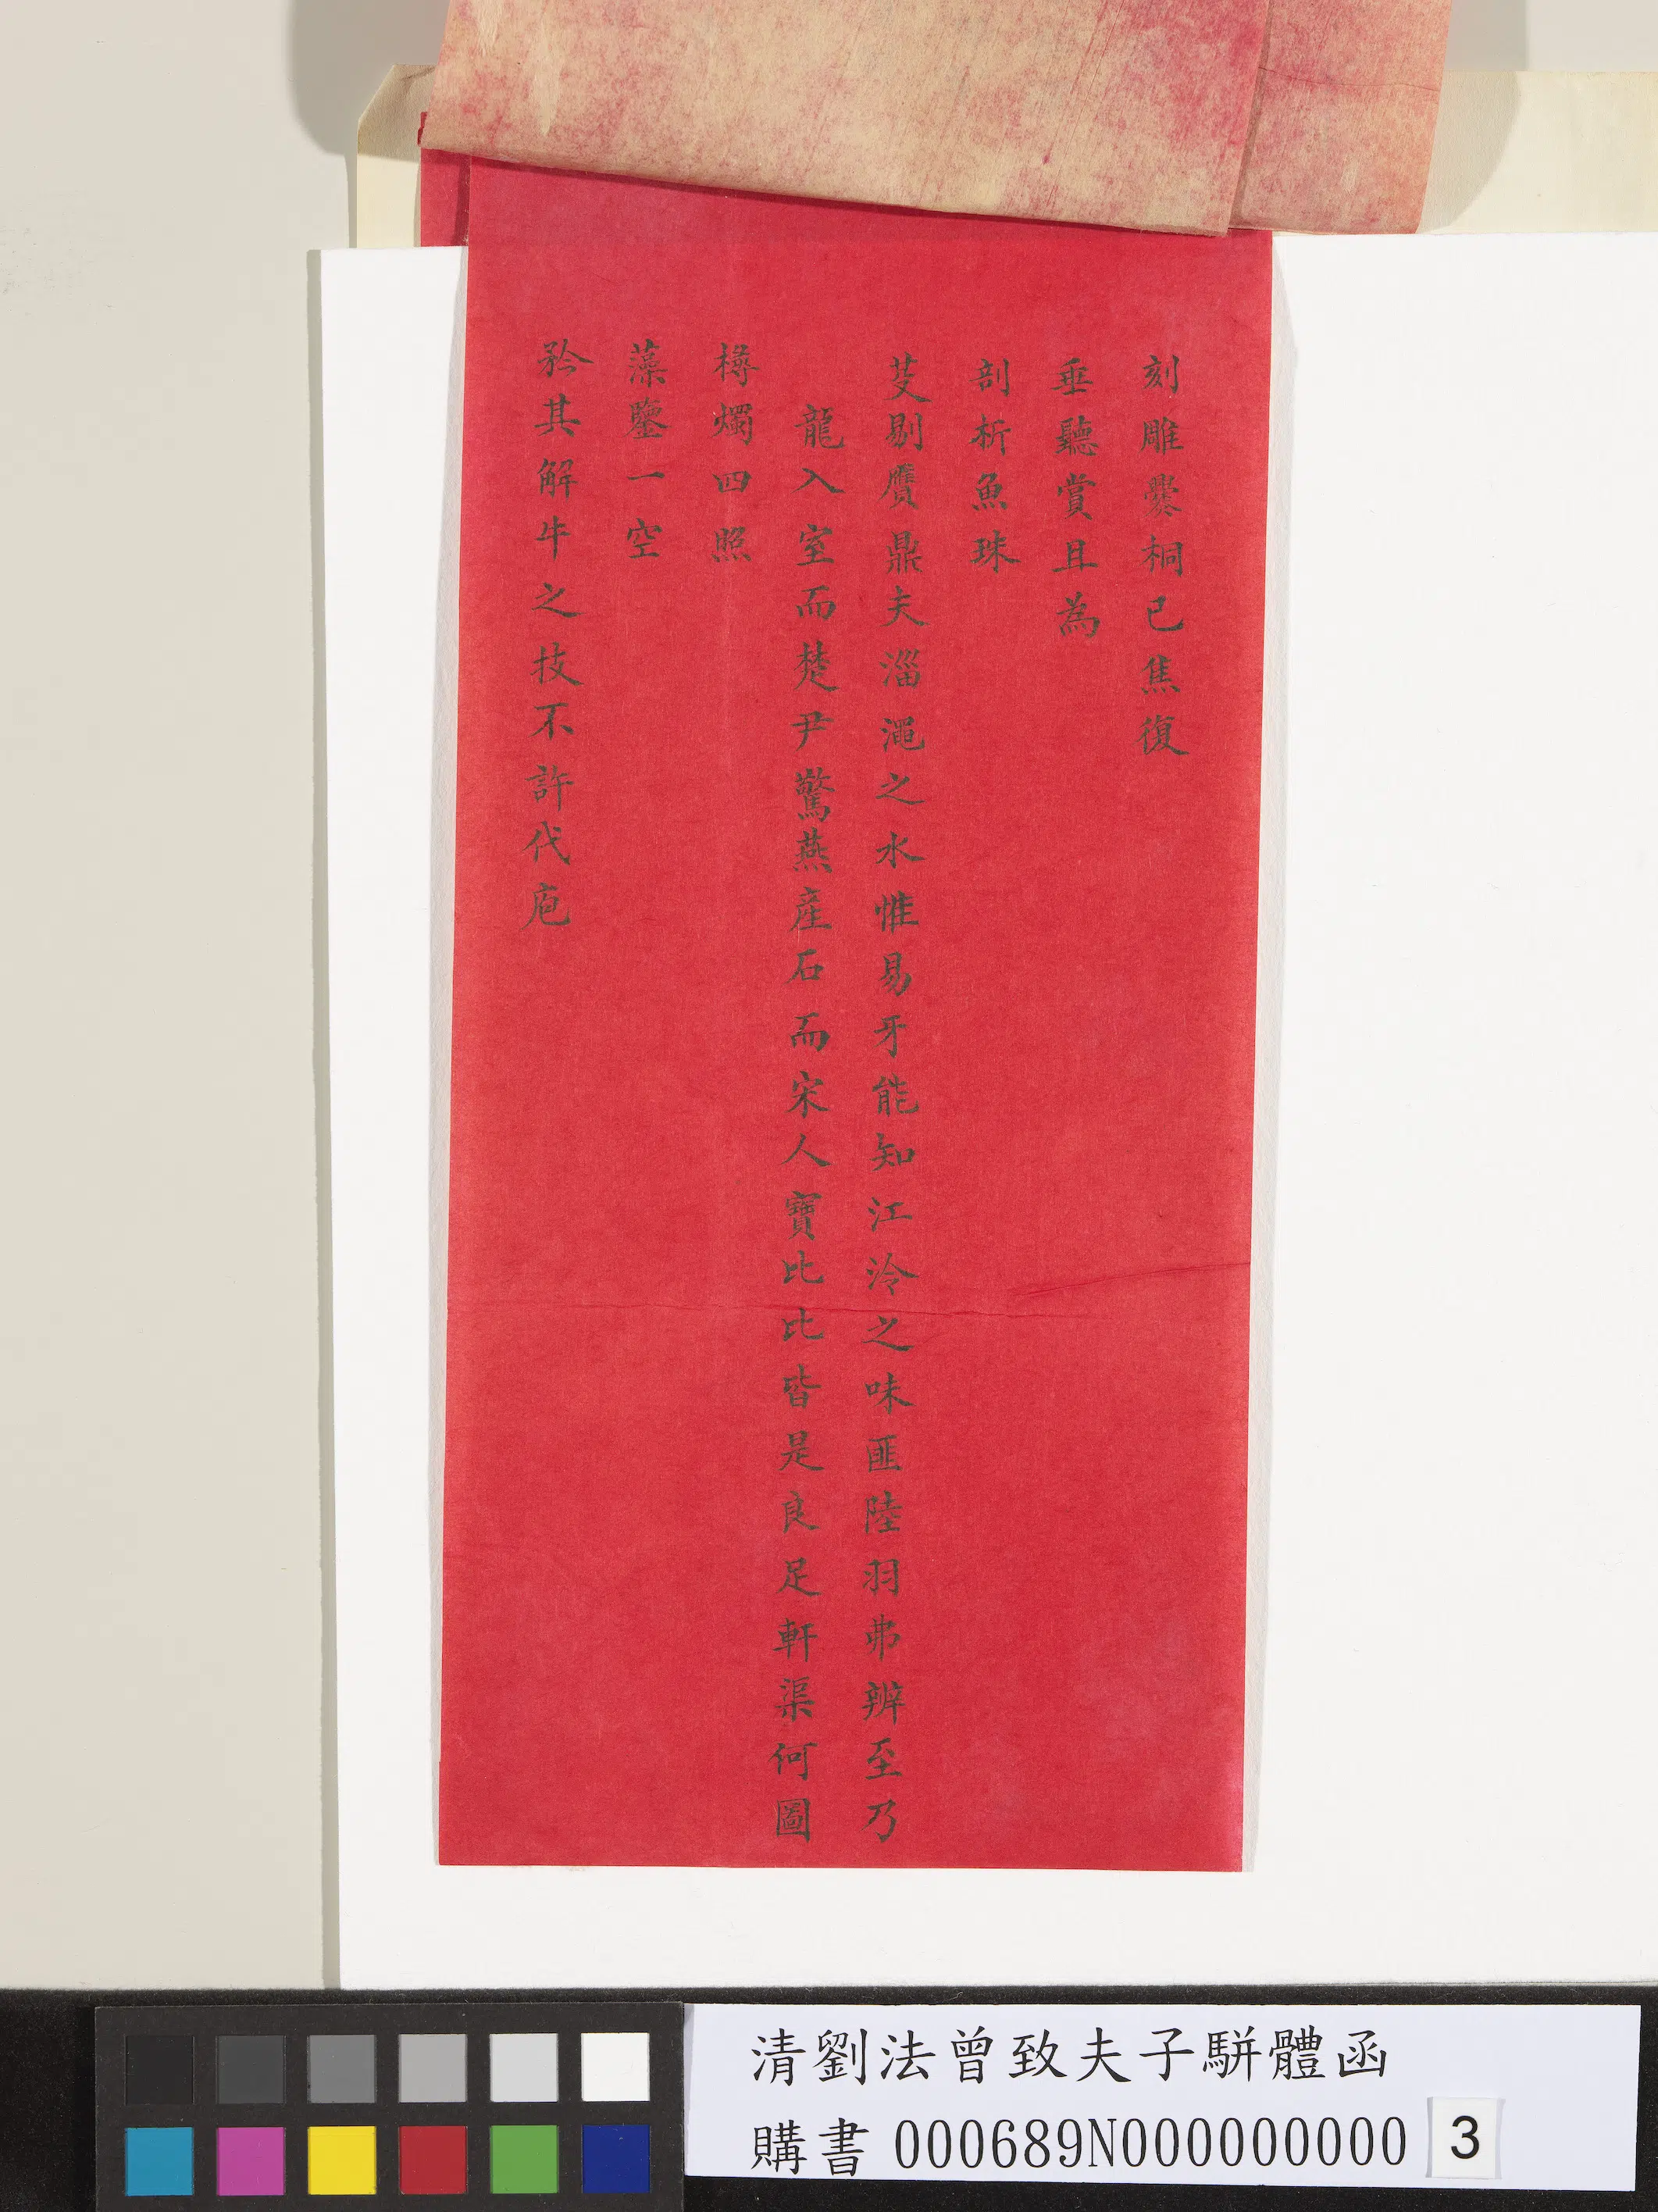 刻雕爨桐已焦復
垂聽賞且為
剖析魚珠
芟剔贋鼎夫淄澠之水惟易牙能知江泠之味匪陸羽弗辨至乃
龍入室而楚尹驚燕產石而宋人寶比比皆是良足軒渠何圖
樽燭四照
藻鑒一空
矜其解牛之技不許代庖
清劉法曾致夫子駢體函
購書 000689N000000000 3